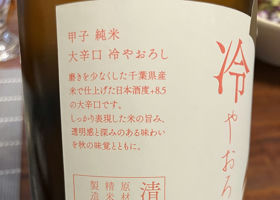 甲子 純米
大辛口 冷やおろし
磨きを少なくした千葉県産
米で仕上げた日本酒度+8.5
の大辛口です。
しっかり表現した米の旨み、
透明感と深みのある味わい
を秋の味覚とともに。
冷やおろ
清
原材
精米
製造